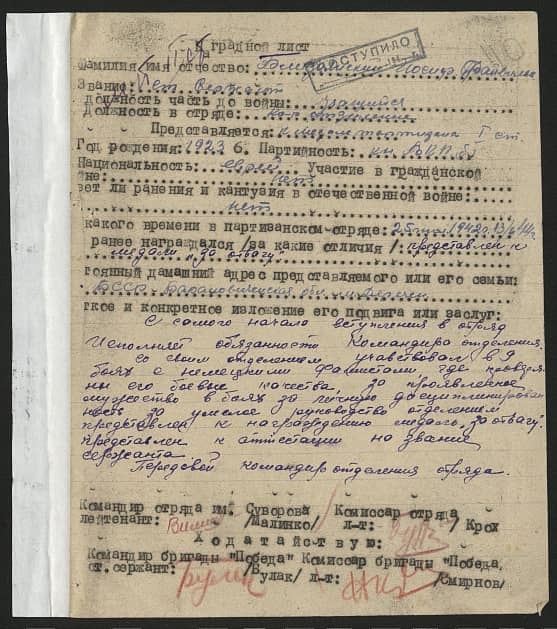 Наградной лист
ПОСТУПИЛО
Фамилия имя отчество: Иосиф
Звание:
должность часть до войны:
Должность в отряде: ком отделения
Представляется: к медали партизана I ст.
Год рождения: 1923 г. Партийность: кн. ВКП(б)
Национальность: еврей Участие в гражданской
йне: нет
еет ли ранения и кантузия в отечественной войне:
нет
какого времени в партизанском отряде: 1942 г.
ранее награждался /за какие отличия/: представлен к
медали "за отвагу"
тоянный дамашний адрес представляемого или его семьи:
БССР Барановичская обл.
ткое и конкретное изложение его подвига или заслуг:
С самого начало вступления в отряд
Исполняет обязанности Командира отделения.
Со своим отделением участвовал в 9
боях с немецкими фашистами, где проявле
ны его боевые качества, за проявленное
мужество в боях за личную дисциплинирован
ность за умелое руководство отделением
представлен к награждению медаль "за отвагу".
Представлен к аттестации на звание
сержанта.
Передовой командир отделения отряда.
Командир отряда им. Суворова Комиссар отряда
лейтенант: /Малинко/ л-т: / Крох
Ходатайствую:
Командир бригады "Победа" Комиссар бригады "Победа,
ст. сержант: /Булак/ л-т: /Смирнов/